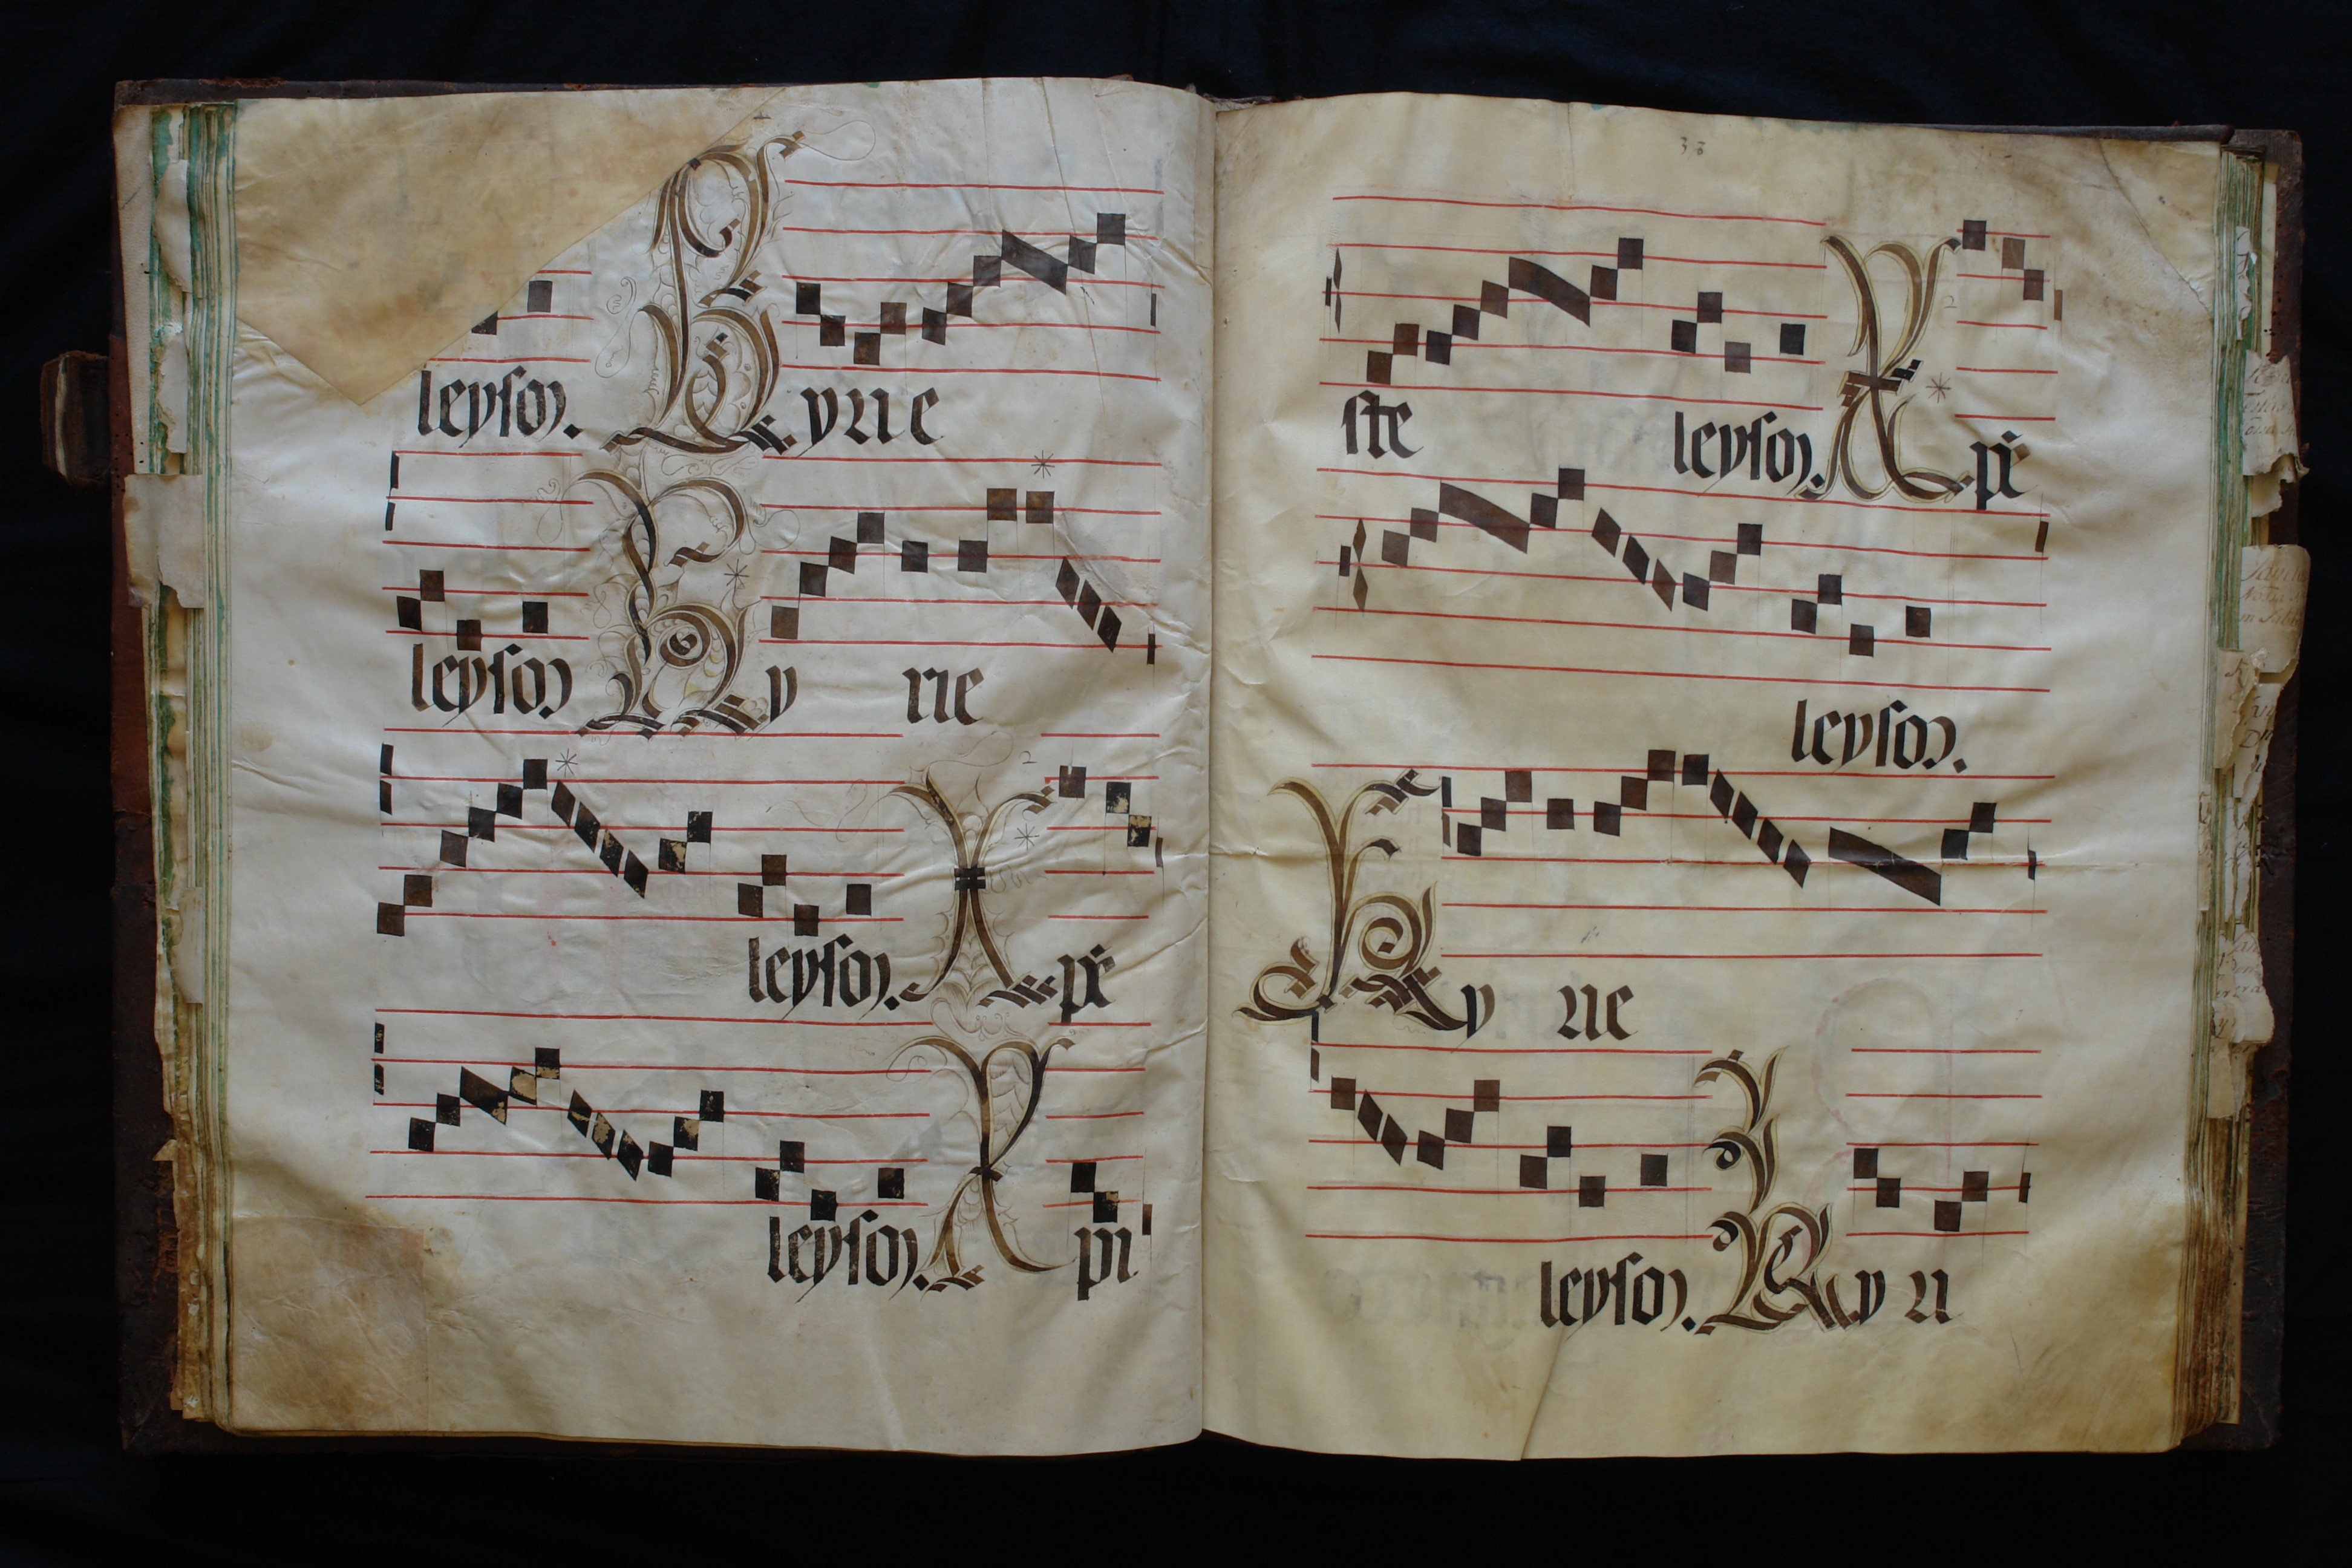 leyson. Kyrie
leyson Ky rie
leyson. Xpē
leyson. Xpi
38
ste leyson. Xpē
leyson.
Ky rie
leyson. Ky ri